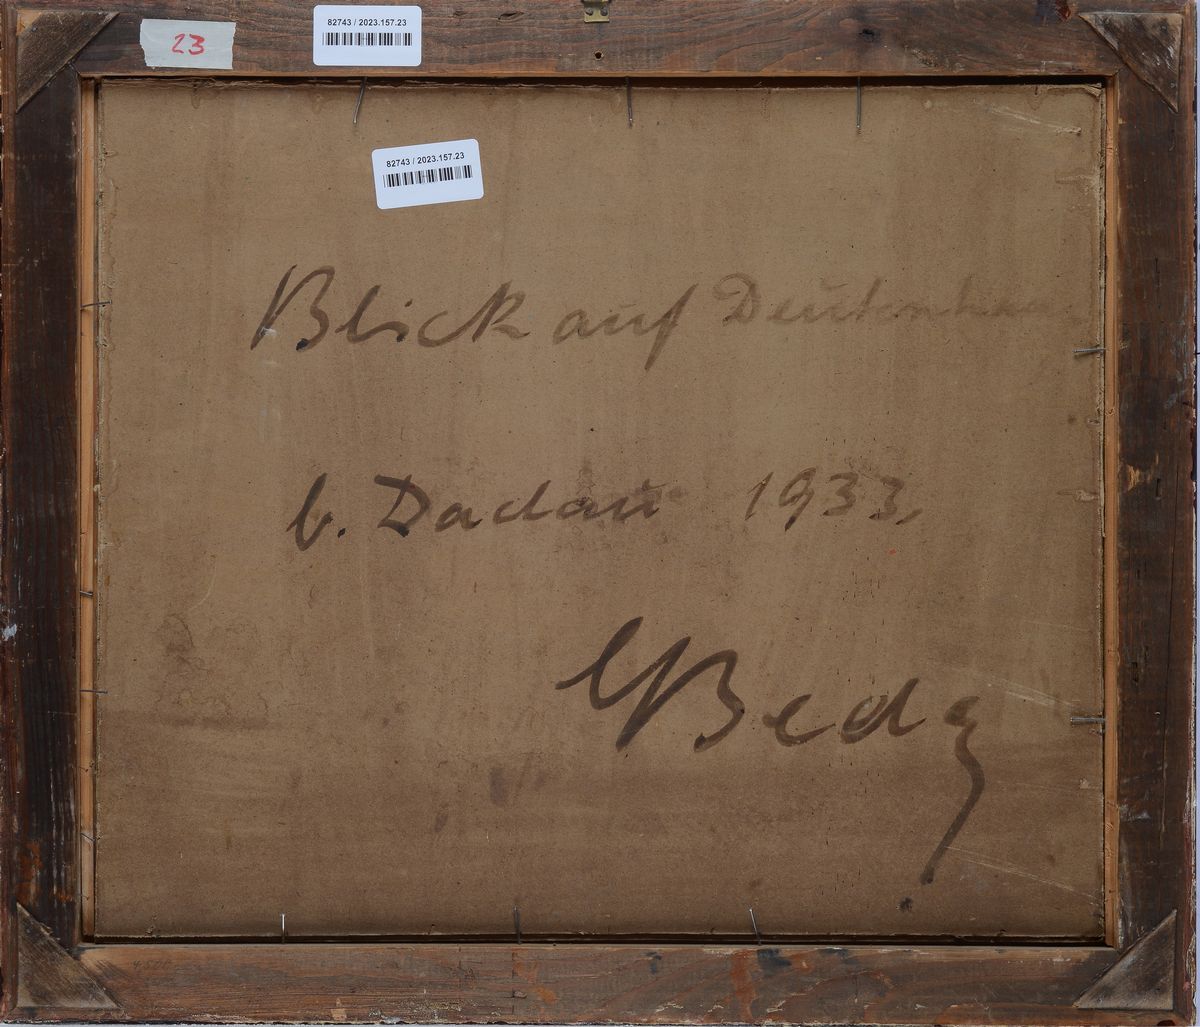 23
82743 / 2023.157.23
82743 / 2023.157.23
Blick auf
b. Dachau 1933,